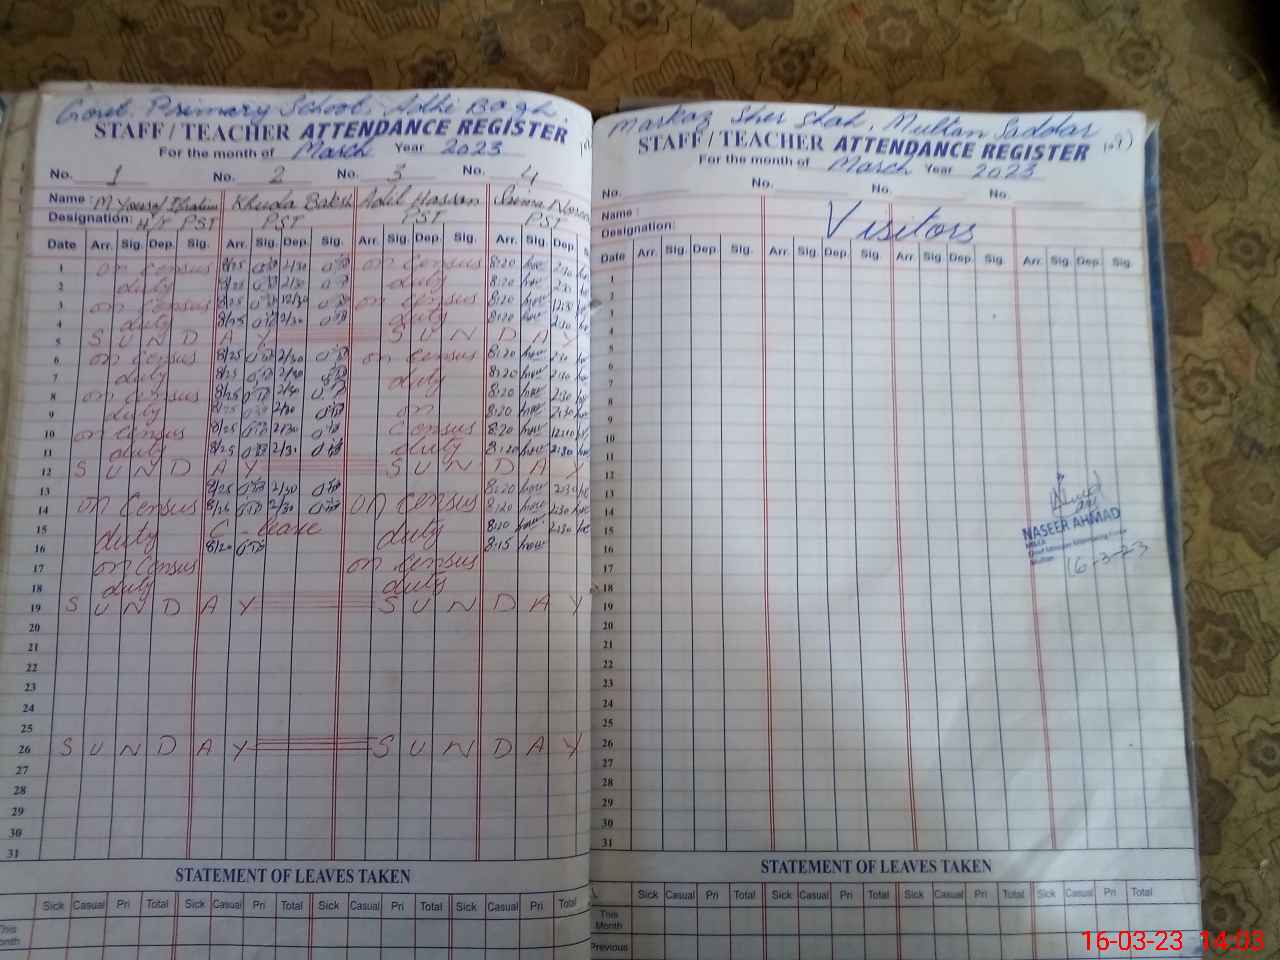 Govt. Primary School, Adhi Bagh.
STAFF / TEACHER ATTENDANCE REGISTER
For the month of March Year 2023
No. 1 No. 2 No. 3 No. 4
Name : M Yousaf Khuda Baksh Adil Hassan
Designation: H/T PST PST PST PST
Date Arr. Sig. Dep. Sig. Arr. Sig. Dep. Sig. Arr. Sig. Dep. Sig. Arr. Sig. Dep.
1 on census 8/25 2/30 on census 8:20 2:30
2 duty 8/25 2/30 duty 8:20 2:30
3 on census 8/25 12/30 on census 8:20 12:30
4 duty 8/25 2/30 duty 8:20 2:30
5 S U N D A Y S U N D A Y
6 on census 8/25 2/30 on census 8:20 2:30
7 duty 8/25 2/30 duty 8:20 2:30
8 on census 8/25 8:20 2:30
9 duty 8/25 2/30 on 8:20 2:30
10 on census 8/25 census 8:20 12:30
11 duty 8/25 2/30 duty 8:20 2:30
12 S U N D A Y S U N D A Y
13 8/25 2/30 8:20 2:30
14 on census 2/30 on census 8:20 2:30
15 duty C - leave duty 8:20 2:30
16 8/20 8:15
17 on census on census
18 duty duty
19 S U N D A Y S U N D A Y
20
21
22
23
24
25
26 S U N D A Y S U N D A Y
27
28
29
30
31
STATEMENT OF LEAVES TAKEN
Sick Casual Pri Total Sick Casual Pri Total Sick Casual Pri Total Sick Casual Pri Total
This
Month
Markaz Sher Shah, Multan Saddar
STAFF / TEACHER ATTENDANCE REGISTER
For the month of March Year 2023
No. No. No. No.
Name :
Designation:
Visitors
Date Arr. Sig. Dep. Sig. Arr. Sig. Dep. Sig. Arr. Sig. Dep. Sig. Arr. Sig. Dep. Sig.
1
2
3
4
5
6
7
8
9
10
11
12
13
14
15
16
17
18
19
20
21
22
23
24
25
26
27
28
29
30
31
NASEER AHMAD
Multan
16-3-23
STATEMENT OF LEAVES TAKEN
Sick Casual Pri Total Sick Casual Pri Total Sick Casual Pri Total Sick Casual Pri Total
This
Month
Previous
16-03-23 14:03